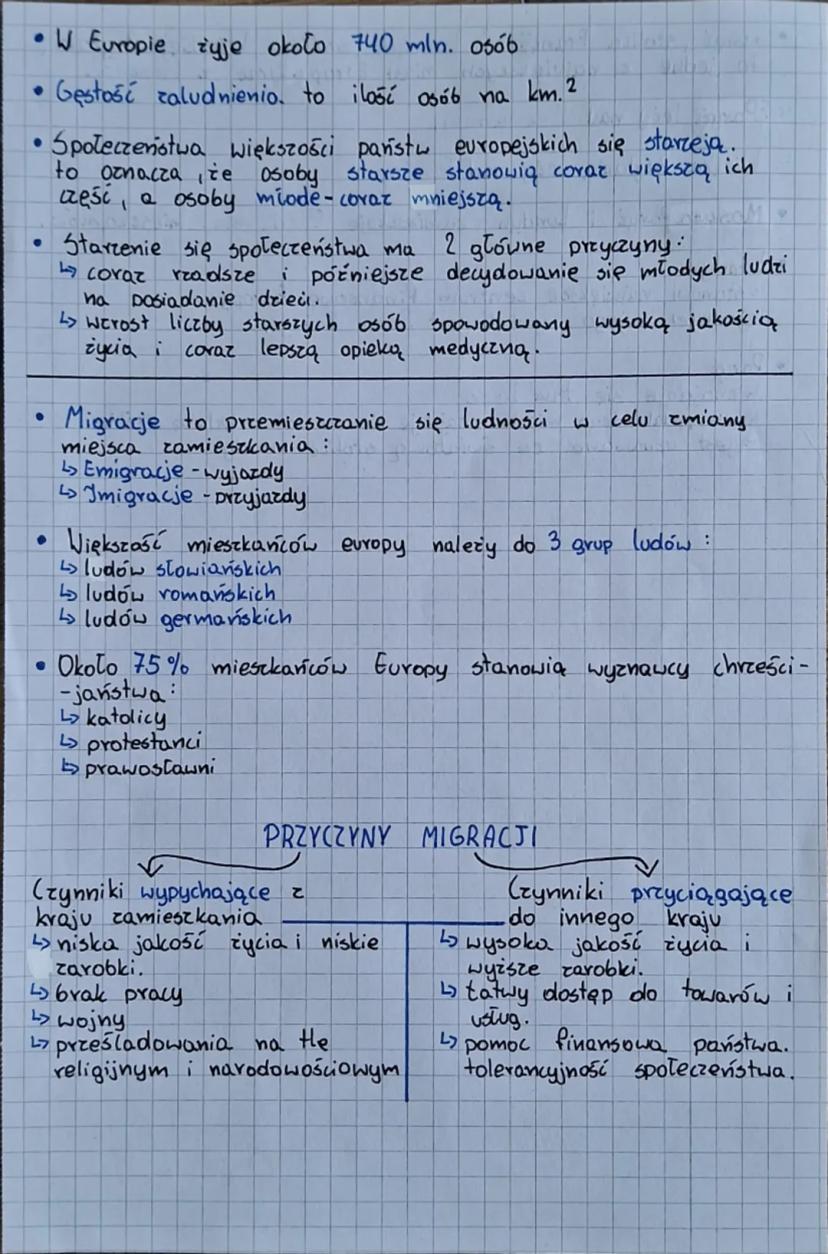 • W Europie żyje około 740 mln. osób
• Gęstość zaludnienia. to ilość osób na km.²
• Społeczeństwa większości państw europejskich się starzeją.
to oznacza, że osoby starsze stanowią coraz większą ich
część, a osoby młode - coraz mniejszą.
• Starzenie się społeczeństwa ma 2 główne przyczyny:
↳ coraz rzadsze i późniejsze decydowanie się młodych ludzi
na posiadanie dzieci.
↳ wzrost liczby starszych osób spowodowany wysoką jakością
życia i coraz lepszą opieką medyczną.
• Migracje to przemieszczanie się ludności w celu zmiany
miejsca zamieszkania:
↳ Emigracje - wyjazdy
↳ Imigracje - przyjazdy
• Większość mieszkańców europy należy do 3 grup ludów:
↳ ludów słowiańskich
↳ ludów romańskich
↳ ludów germańskich
• Około 75% mieszkańców Europy stanowią wyznawcy chrześci-
-jaństwa:
↳ katolicy
↳ protestanci
↳ prawosławni
PRZYCZYNY MIGRACJI
Czynniki wypychające z
kraju zamieszkania
↳ niska jakość życia i niskie
zarobki.
↳ brak pracy
↳ wojny
↳ prześladowania na tlę
religijnym i narodowościowym
Czynniki przyciągające
do innego kraju
↳ wysoka jakość życia i
wyższe zarobki.
↳ łatwy dostęp do towarów i
usług.
↳ pomoc finansowa państwa.
tolerancyjność społeczeństwa.